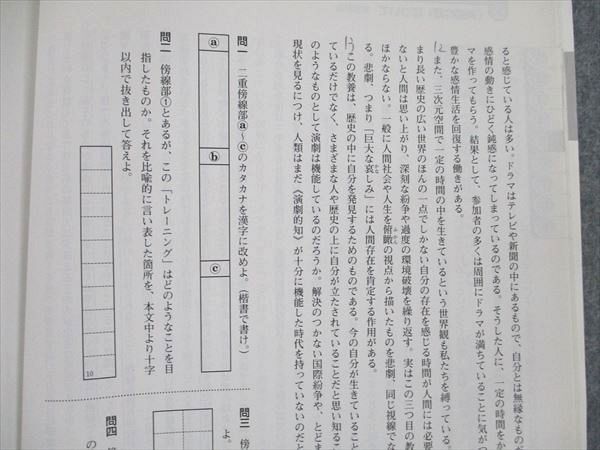 ると感じている人は多い。ドラマはテレビや新聞の中にあるもので、自分とは無縁なものだ
感情の動きにひどく鈍感になってしまっているのである。そうした人に、一定の時間をか
マを作ってもらう。結果として、参加者の多くは周囲にドラマが満ちていることに気がつ
豊かな感情生活を回復する働きがある。
12 また、三次元空間で一定の時間の中を生きているという世界観も私たちを縛っている。
まり長い歴史の広い世界のほんの一点でしかない自分の存在を感じる時間が人間には必要
ないと人間は思い上がり、深刻な紛争や過度の環境破壊を繰り返す。実はこの三つ目の教
ほかならない。一般に人間社会や人生を俯瞰の視点から描いたものを悲劇、同じ視線でな
る。悲劇、つまり「巨大な哀しみ」には人間存在を肯定する作用がある。
13 この教養は、歴史の中に自分を発見するためのものである。今の自分が生きていること
ているだけでなく、さまざまな人や歴史の上に自分が立たされていることだと思い知るこ
のようなものとして演劇は機能しているのだろうか。解決のつかない国際紛争や、とどま
現状を見るにつけ、人類はまだ《演劇的知》が十分に機能した時代を持っていないのだと
問一 二重傍線部ⓐ~ⓒのカタカナを漢字に改めよ。(楷書で書け。)
ⓐ
ⓑ
ⓒ
問二 傍線部①とあるが、この「トレーニング」はどのようなことを目
指したものか。それを比喩的に言い表した箇所を、本文中より十字
以内で抜き出して答えよ。
10
問三 傍
よ。
問四
の